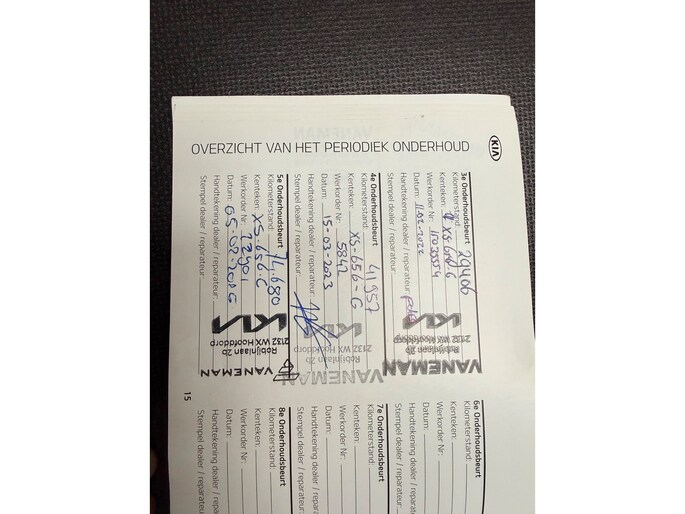 VANEMAN
OVERZICHT VAN HET PERIODIEK ONDERHOUD
KIA
3e Onderhoudsbeurt
Kilometerstand: 29406
Kenteken: XS-656-G
Werkorder Nr.:
Datum: 11-02-2022
Handtekening dealer / reparateur:
Stempel dealer / reparateur:
KIA
Robijnlaan 2b
2132 WX Hoofddorp
VANEMAN
4e Onderhoudsbeurt
Kilometerstand: 41957
Kenteken: XS-656-G
Werkorder Nr.: 5842
Datum: 15-03-2023
Handtekening dealer / reparateur:
Stempel dealer / reparateur:
KIA
Robijnlaan 2b
2132 WX Hoofddorp
VANEMAN
5e Onderhoudsbeurt
Kilometerstand: 74.680
Kenteken: XS.656.G
Werkorder Nr.:
Datum:
Handtekening dealer / reparateur:
Stempel dealer / reparateur:
KIA
Robijnlaan 2b
2132 WX Hoofddorp
VANEMAN
6e Onderhoudsbeurt
Kilometerstand:
Kenteken:
Werkorder Nr.:
Datum:
Handtekening dealer / reparateur:
Stempel dealer / reparateur:
7e Onderhoudsbeurt
Kilometerstand:
Kenteken:
Werkorder Nr.:
Datum:
Handtekening dealer / reparateur:
Stempel dealer / reparateur:
8e Onderhoudsbeurt
Kilometerstand:
Kenteken:
Werkorder Nr.:
Datum:
Handtekening dealer / reparateur:
Stempel dealer / reparateur:
15